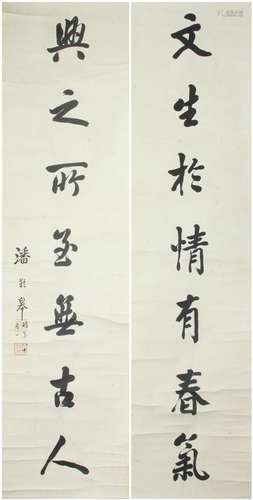 文生於情有春氣
興之所至無古人
潘齡皋